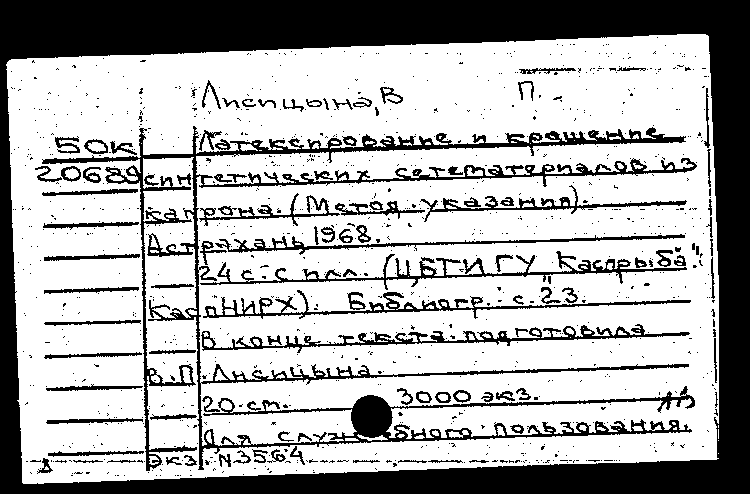 Лисицына, В П.
50к Латексирование и крашение
20689 синтетических сетематериалов из
капрона. (Метод. указания).
Астрахань, 1968.
24 с. с илл. (ЦБТИ ГУ "Каспрыба".
КаспНИРХ). Библиогр.: с. 23.
В конце текста: подготовила
В.П. Лисицына.
20 см. 3000 экз.
Для служебного пользования.
экз. N3564